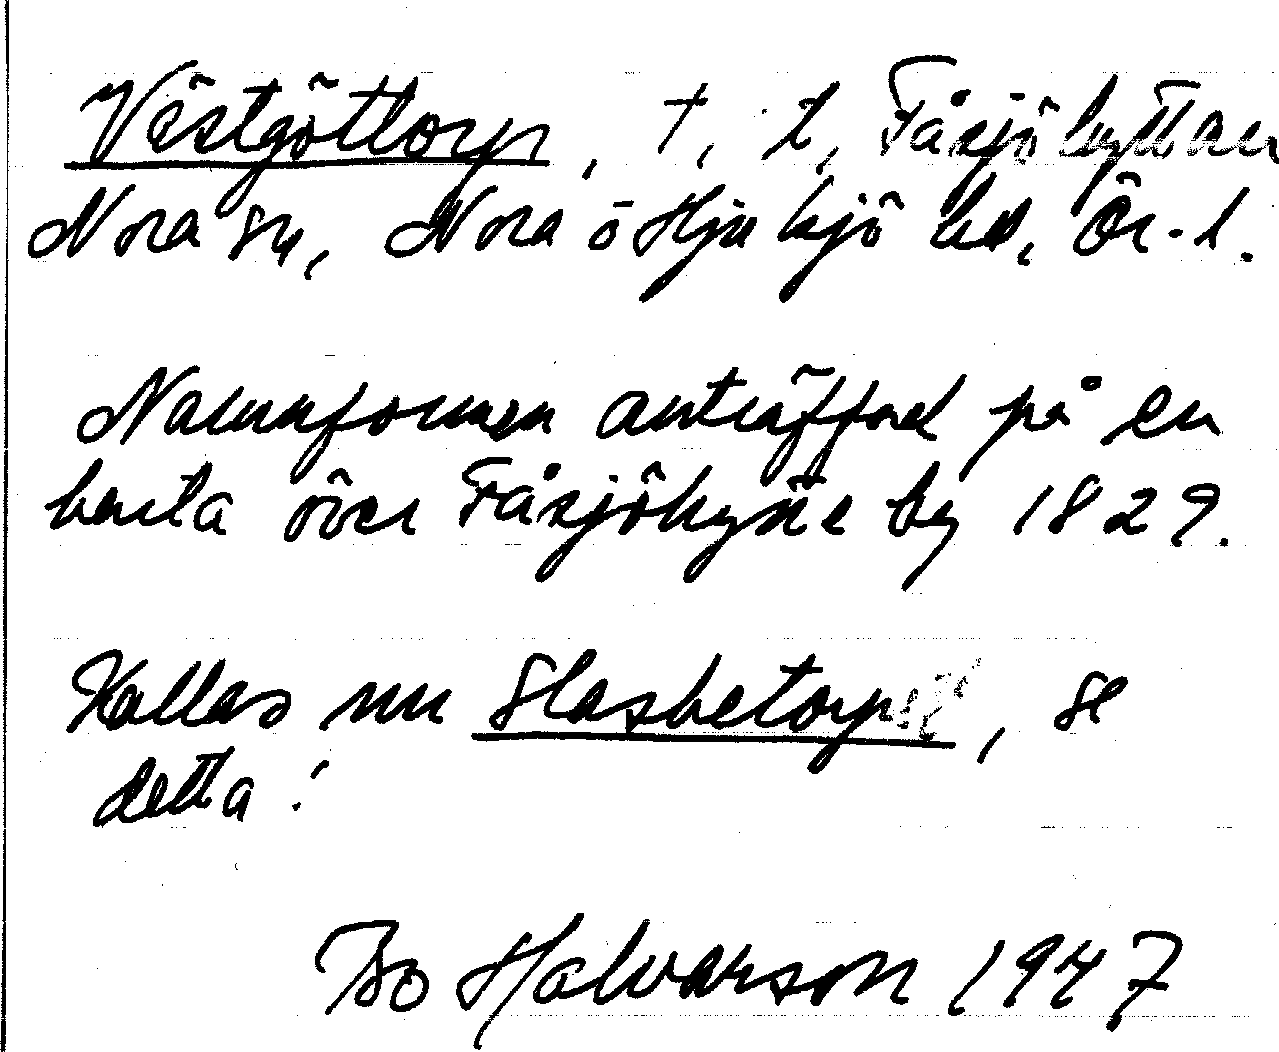 Västgöttorp, t, l, Fåsjöhyttan
Nora sn, Nora o Hjulsjö hd, Ör. l.
Namnformen anträffad på en
karta över Fåsjöhytte by 1829.
Kallas nu Slasketorp, se
detta!
Bo Halvarson 1947